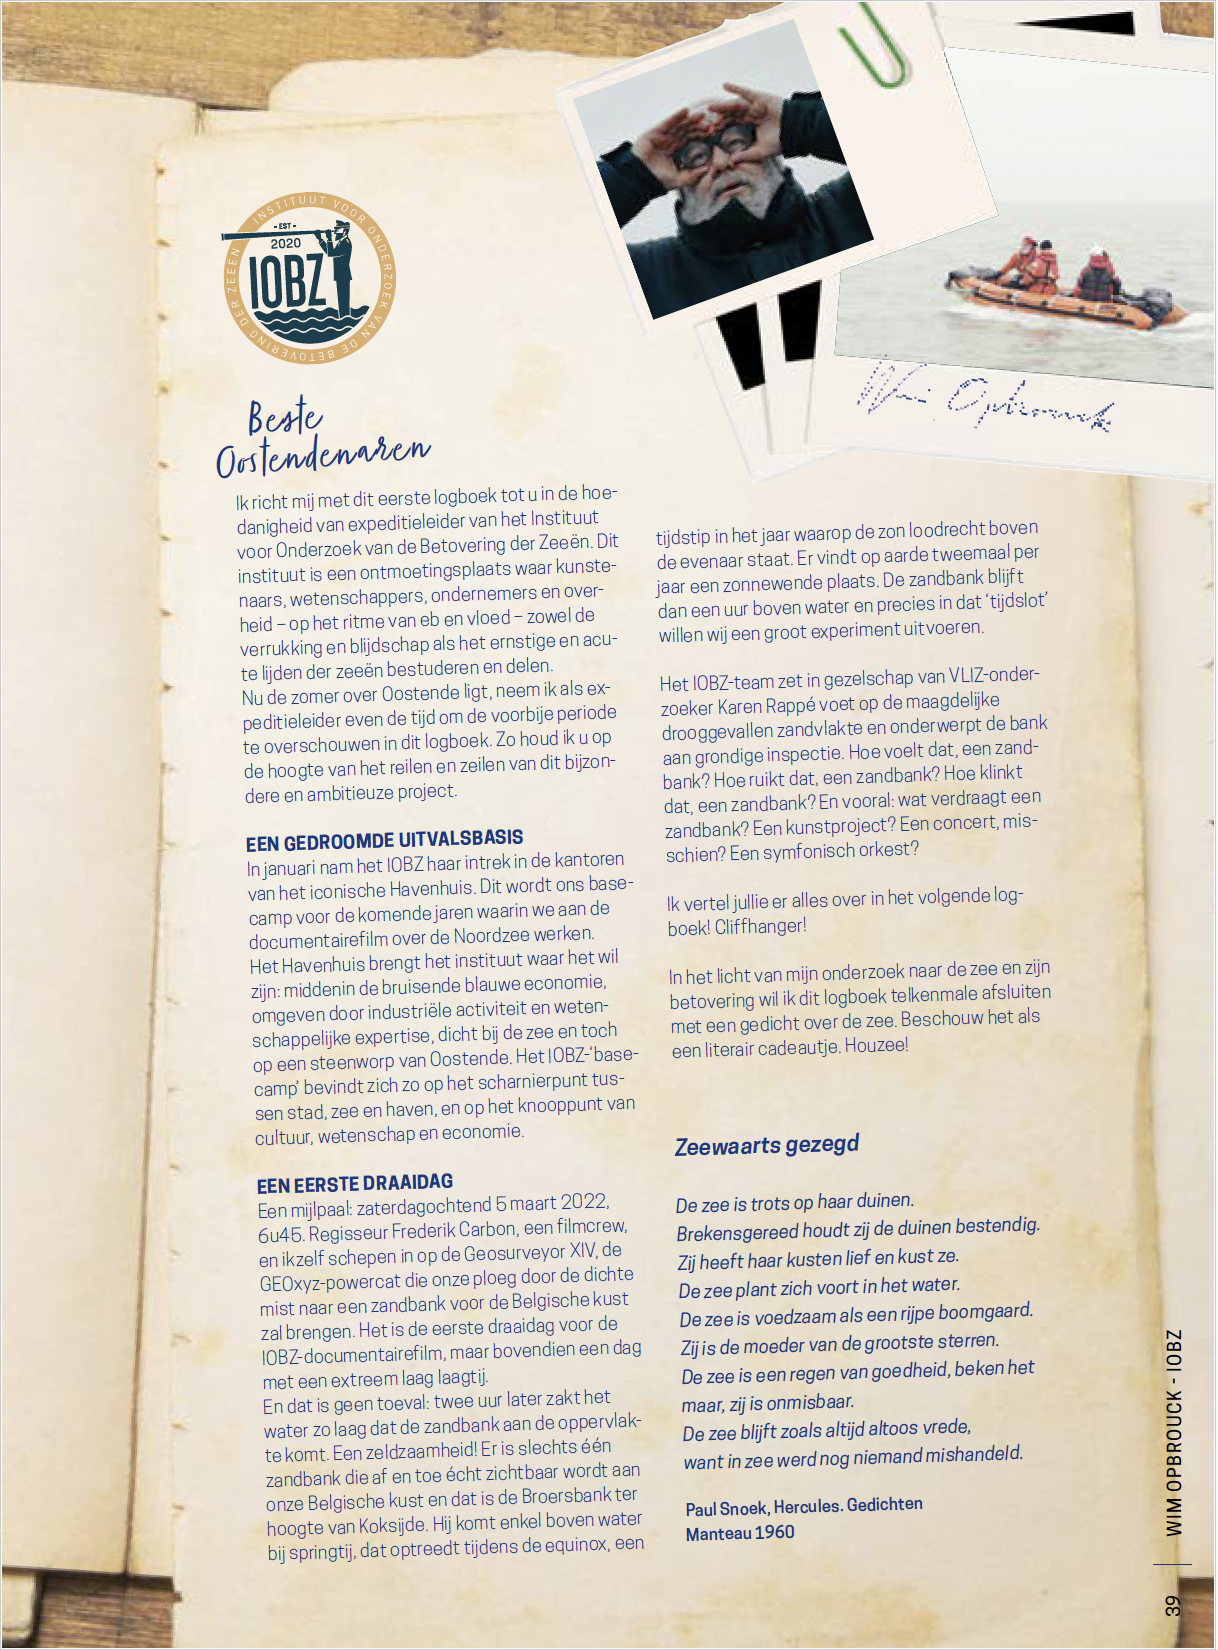 INSTITUUT VOOR ONDERZOEK VAN DE BETOVERING DER ZEEEN
- EST -
2020
IOBZ
Wim Opbrouck
Beste
Oostendenaren
Ik richt mij met dit eerste logboek tot u in de hoe-
danigheid van expeditieleider van het Instituut
voor Onderzoek van de Betovering der Zeeën. Dit
instituut is een ontmoetingsplaats waar kunste-
naars, wetenschappers, ondernemers en over-
heid – op het ritme van eb en vloed – zowel de
verrukking en blijdschap als het ernstige en acu-
te lijden der zeeën bestuderen en delen.
Nu de zomer over Oostende ligt, neem ik als ex-
peditieleider even de tijd om de voorbije periode
te overschouwen in dit logboek. Zo houd ik u op
de hoogte van het reilen en zeilen van dit bijzon-
dere en ambitieuze project.
EEN GEDROOMDE UITVALSBASIS
In januari nam het IOBZ haar intrek in de kantoren
van het iconische Havenhuis. Dit wordt ons base-
camp voor de komende jaren waarin we aan de
documentairefilm over de Noordzee werken.
Het Havenhuis brengt het instituut waar het wil
zijn: middenin de bruisende blauwe economie,
omgeven door industriële activiteit en weten-
schappelijke expertise, dicht bij de zee en toch
op een steenworp van Oostende. Het IOBZ-‘base-
camp’ bevindt zich zo op het scharnierpunt tus-
sen stad, zee en haven, en op het knooppunt van
cultuur, wetenschap en economie.
EEN EERSTE DRAAIDAG
Een mijlpaal: zaterdagochtend 5 maart 2022,
6u45. Regisseur Frederik Carbon, een filmcrew,
en ikzelf schepen in op de Geosurveyor XIV, de
GEOxyz-powercat die onze ploeg door de dichte
mist naar een zandbank voor de Belgische kust
zal brengen. Het is de eerste draaidag voor de
IOBZ-documentairefilm, maar bovendien een dag
met een extreem laag laagtij.
En dat is geen toeval: twee uur later zakt het
water zo laag dat de zandbank aan de oppervlak-
te komt. Een zeldzaamheid! Er is slechts één
zandbank die af en toe écht zichtbaar wordt aan
onze Belgische kust en dat is de Broersbank ter
hoogte van Koksijde. Hij komt enkel boven water
bij springtij, dat optreedt tijdens de equinox, een
tijdstip in het jaar waarop de zon loodrecht boven
de evenaar staat. Er vindt op aarde tweemaal per
jaar een zonnewende plaats. De zandbank blijft
dan een uur boven water en precies in dat ‘tijdslot’
willen wij een groot experiment uitvoeren.
Het IOBZ-team zet in gezelschap van VLIZ-onder-
zoeker Karen Rappé voet op de maagdelijke
drooggevallen zandvlakte en onderwerpt de bank
aan grondige inspectie. Hoe voelt dat, een zand-
bank? Hoe ruikt dat, een zandbank? Hoe klinkt
dat, een zandbank? En vooral: wat verdraagt een
zandbank? Een kunstproject? Een concert, mis-
schien? Een symfonisch orkest?
Ik vertel jullie er alles over in het volgende log-
boek! Cliffhanger!
In het licht van mijn onderzoek naar de zee en zijn
betovering wil ik dit logboek telkenmale afsluiten
met een gedicht over de zee. Beschouw het als
een literair cadeautje. Houzee!
Zeewaarts gezegd
De zee is trots op haar duinen.
Brekensgereed houdt zij de duinen bestendig.
Zij heeft haar kusten lief en kust ze.
De zee plant zich voort in het water.
De zee is voedzaam als een rijpe boomgaard.
Zij is de moeder van de grootste sterren.
De zee is een regen van goedheid, beken het
maar, zij is onmisbaar.
De zee blijft zoals altijd altoos vrede,
want in zee werd nog niemand mishandeld.
Paul Snoek, Hercules. Gedichten
Manteau 1960
WIM OPBROUCK - IOBZ
39